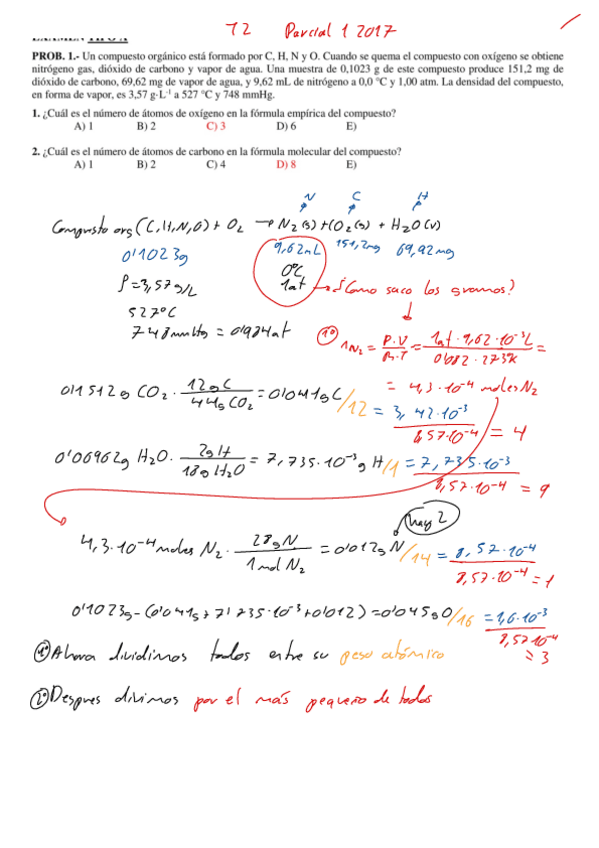 T2 Parcial 1 2017
EXAMEN TIPO A
PROB. 1.- Un compuesto orgánico está formado por C, H, N y O. Cuando se quema el compuesto con oxígeno se obtiene
nitrógeno gas, dióxido de carbono y vapor de agua. Una muestra de 0,1023 g de este compuesto produce 151,2 mg de
dióxido de carbono, 69,62 mg de vapor de agua, y 9,62 mL de nitrógeno a 0,0 °C y 1,00 atm. La densidad del compuesto,
en forma de vapor, es 3,57 g·L⁻¹ a 527 °C y 748 mmHg.
1. ¿Cuál es el número de átomos de oxígeno en la fórmula empírica del compuesto?
A) 1 B) 2 C) 3 D) 6 E)
2. ¿Cuál es el número de átomos de carbono en la fórmula molecular del compuesto?
A) 1 B) 2 C) 4 D) 8 E)
N C H
Compuesto org (C,H,N,O) + O₂ → N₂(g) + CO₂(g) + H₂O(v)
0'1023g 9,62mL 151,2mg 69,92mg
ρ=3,57g/L 0ºC
1at → ¿Como saco los gramos?
527ºC
748mmHg = 0'984at
1º nN₂ = P·V/R·T = 1at·9,62·10⁻³L / 0'082·273K =
= 4,3·10⁻⁴ moles N₂
0'1512g CO₂ · 12gC/44gCO₂ = 0'041gC/12 = 3,42·10⁻³/8,57·10⁻⁴ = 4
0'06962g H₂O · 2gH/18gH₂O = 7,735·10⁻³g H/1 = 7,735·10⁻³/8,57·10⁻⁴ = 9
hay 2
4,3·10⁻⁴moles N₂ · 28gN/1mol N₂ = 0'012g N/14 = 8,57·10⁻⁴/8,57·10⁻⁴ = 1
0'1023g-(0'041g+7'735·10⁻³+0'012)=0'045gO/16 = 1,6·10⁻³/8,57·10⁻⁴ = 3
1º Ahora dividimos todos entre su peso atómico
2º Despues divimos por el más pequeño de todos